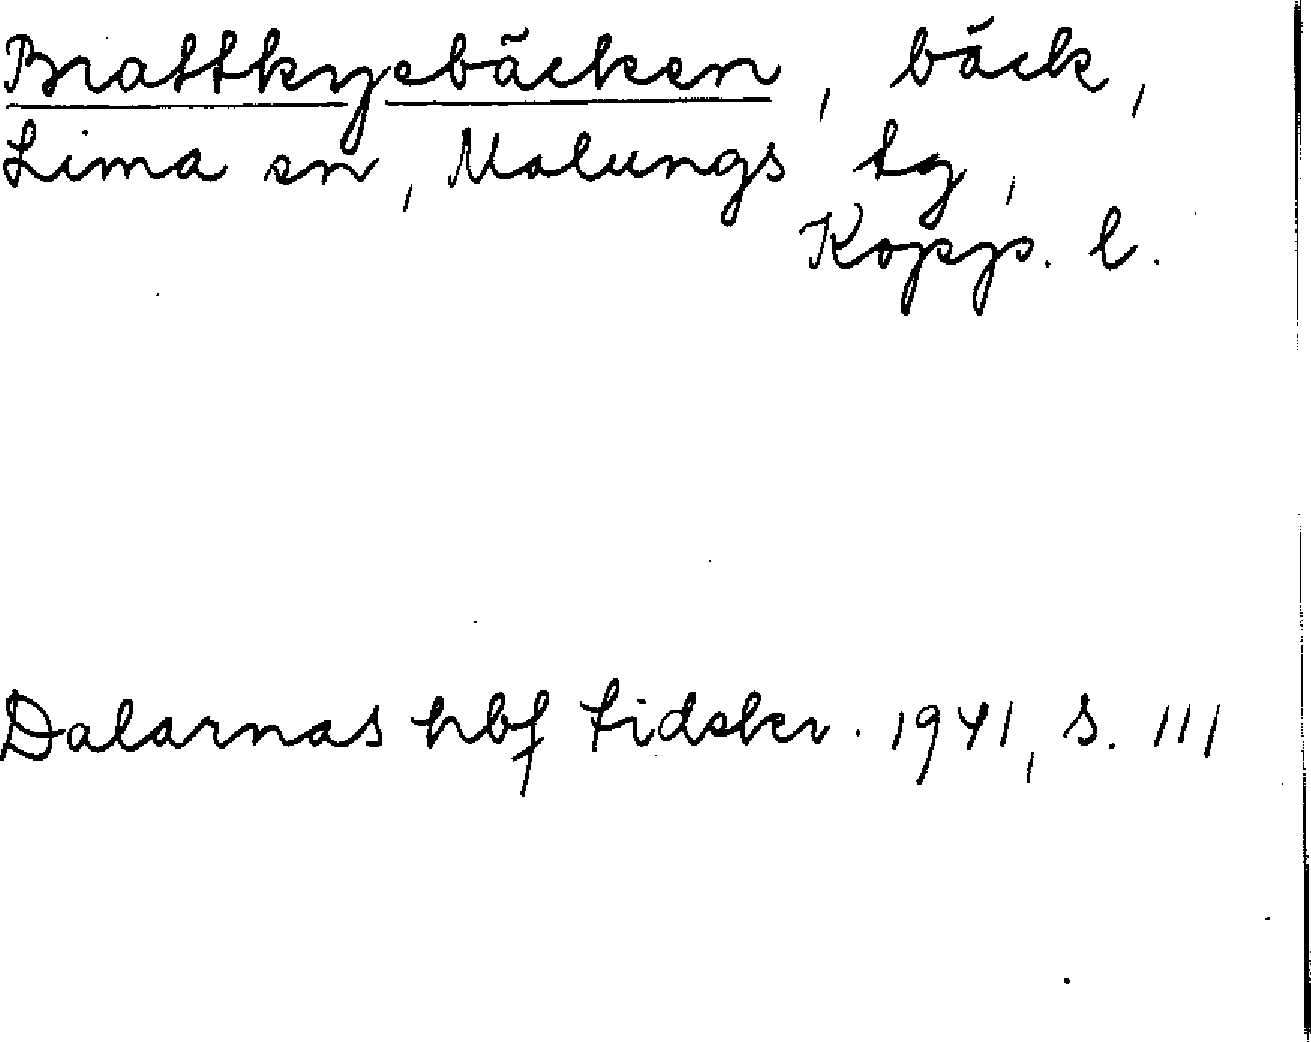 Brattkyebäcken, bäck,
Lima sn, Malungs tg,
Kopp. l.
Dalarnas hbf tidskr. 1941, s. 111